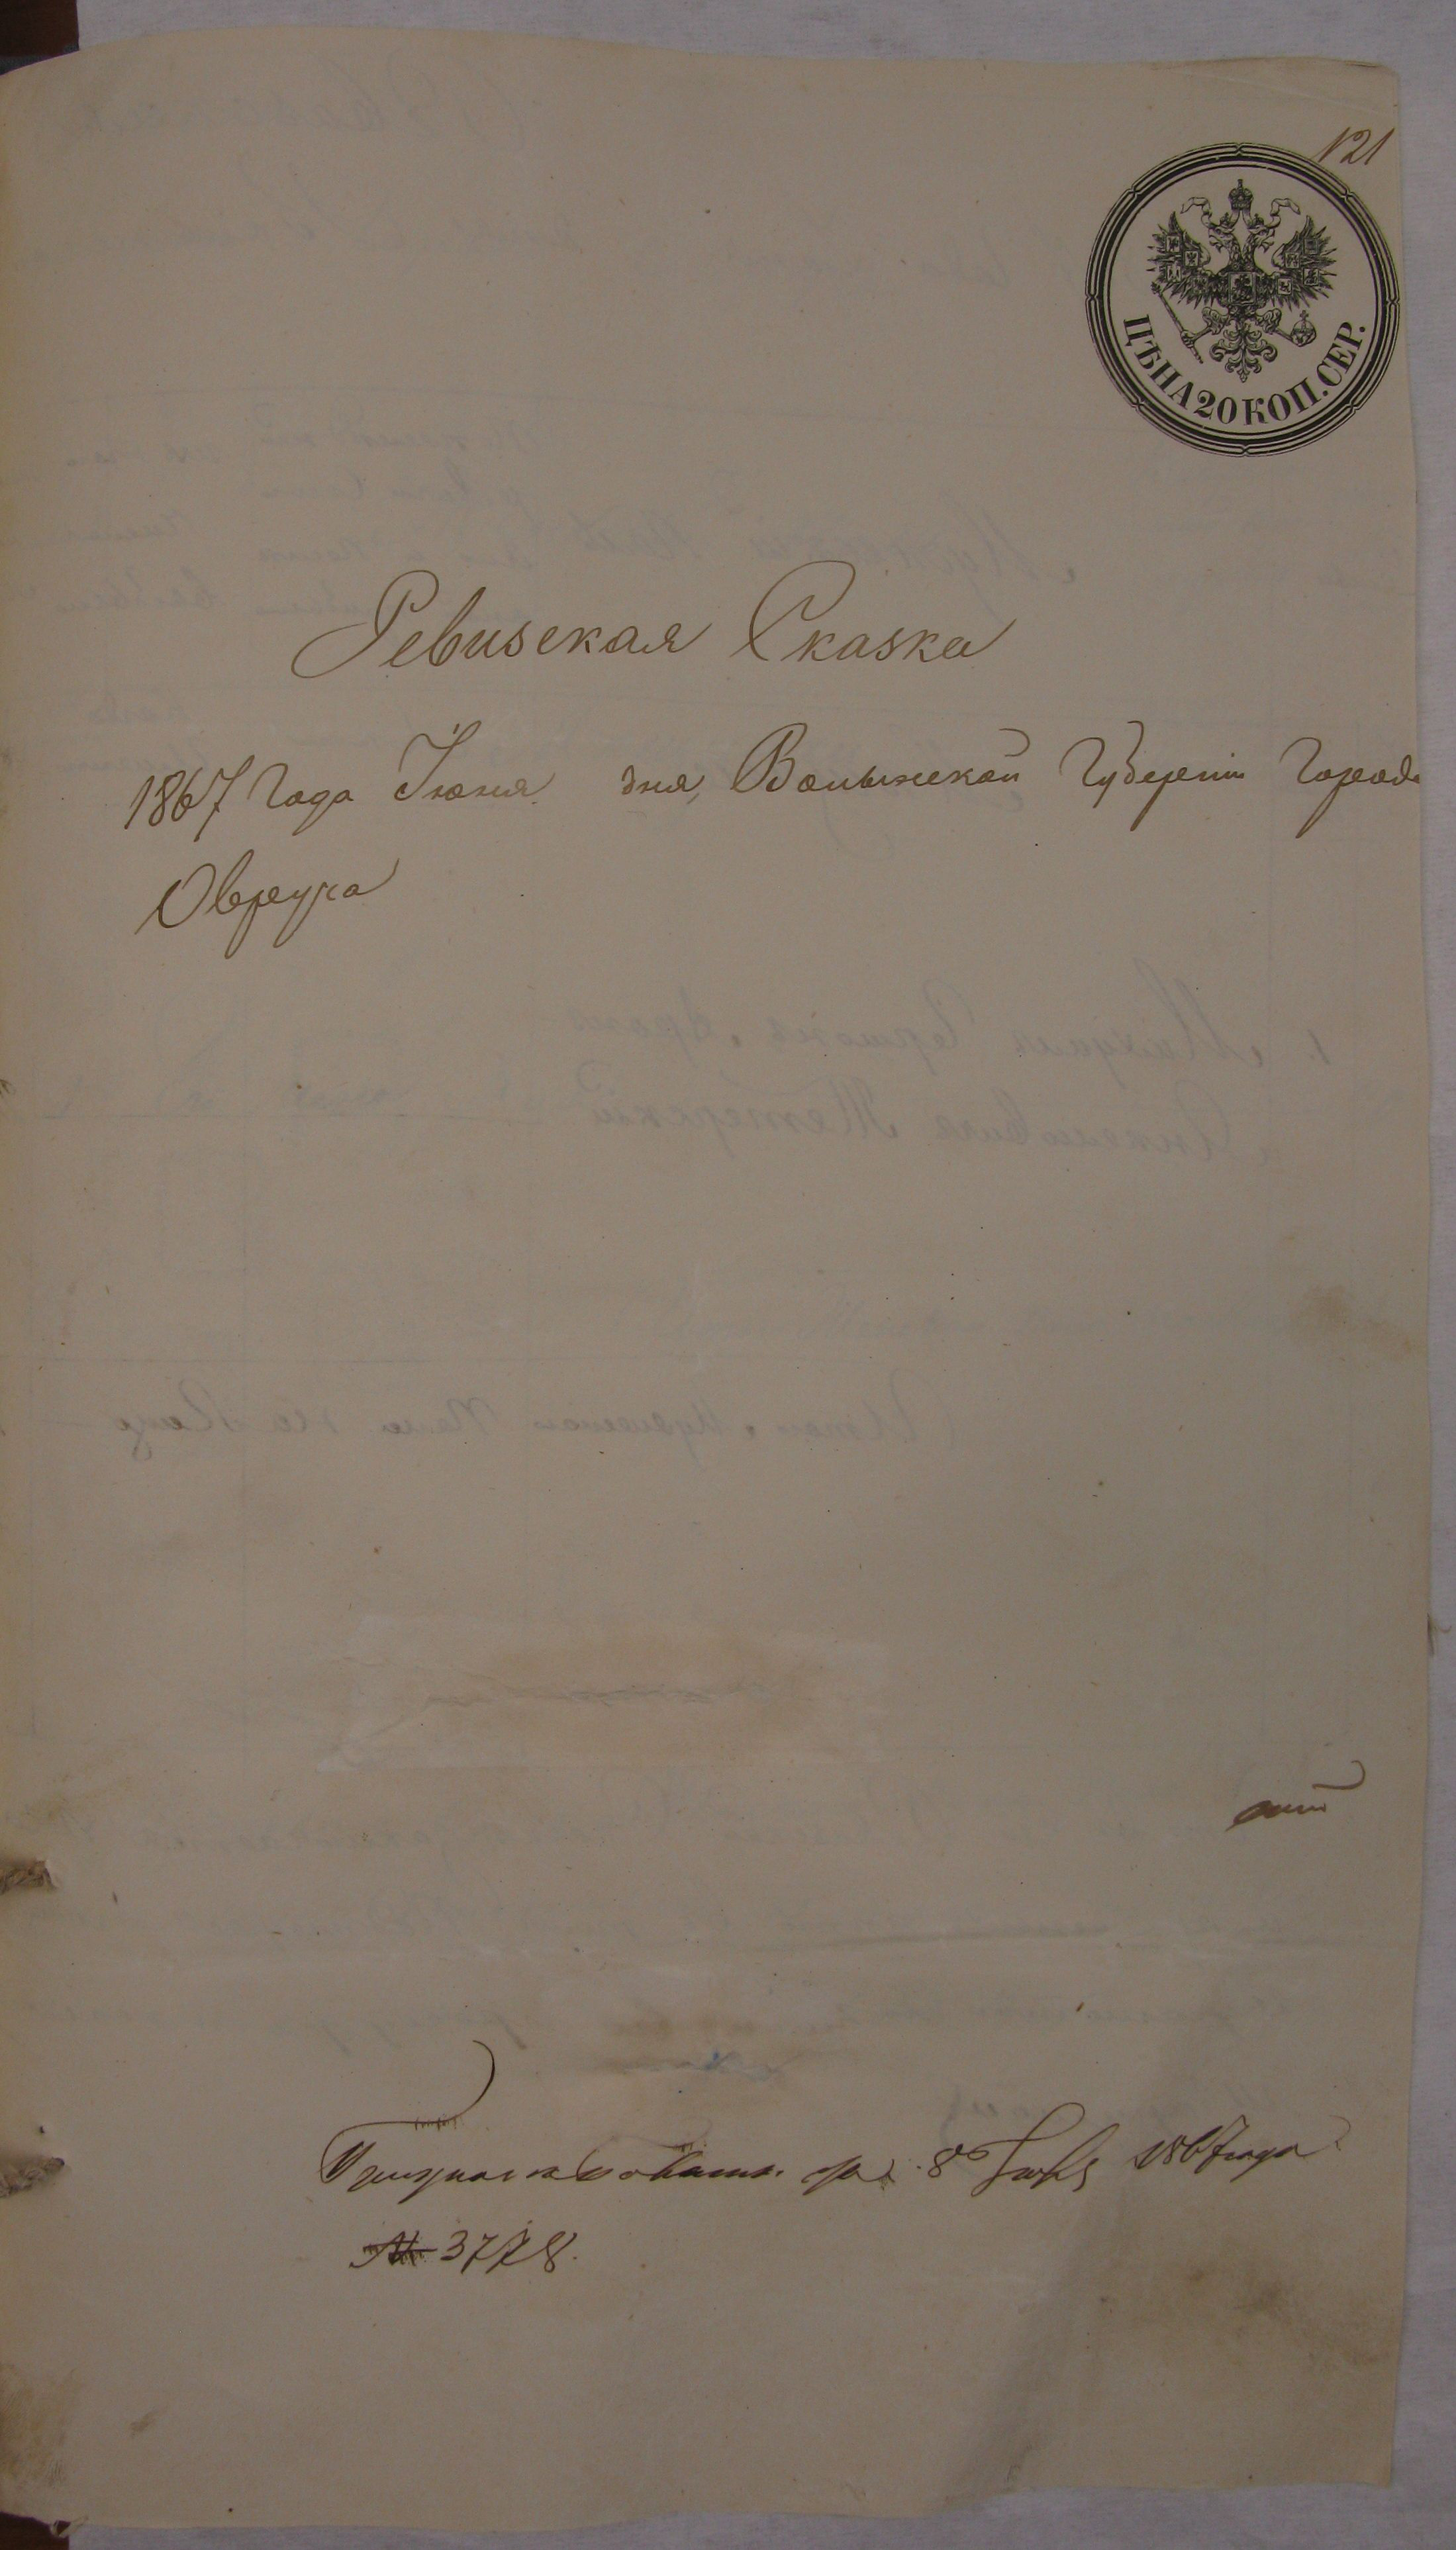 121
ЦѢНА 20 КОП. СЕР.
Ревизская Сказка
1867 Года Іюня дня, Волынской Губерніи Города
Овруча
8 1867 года
№ 3778.